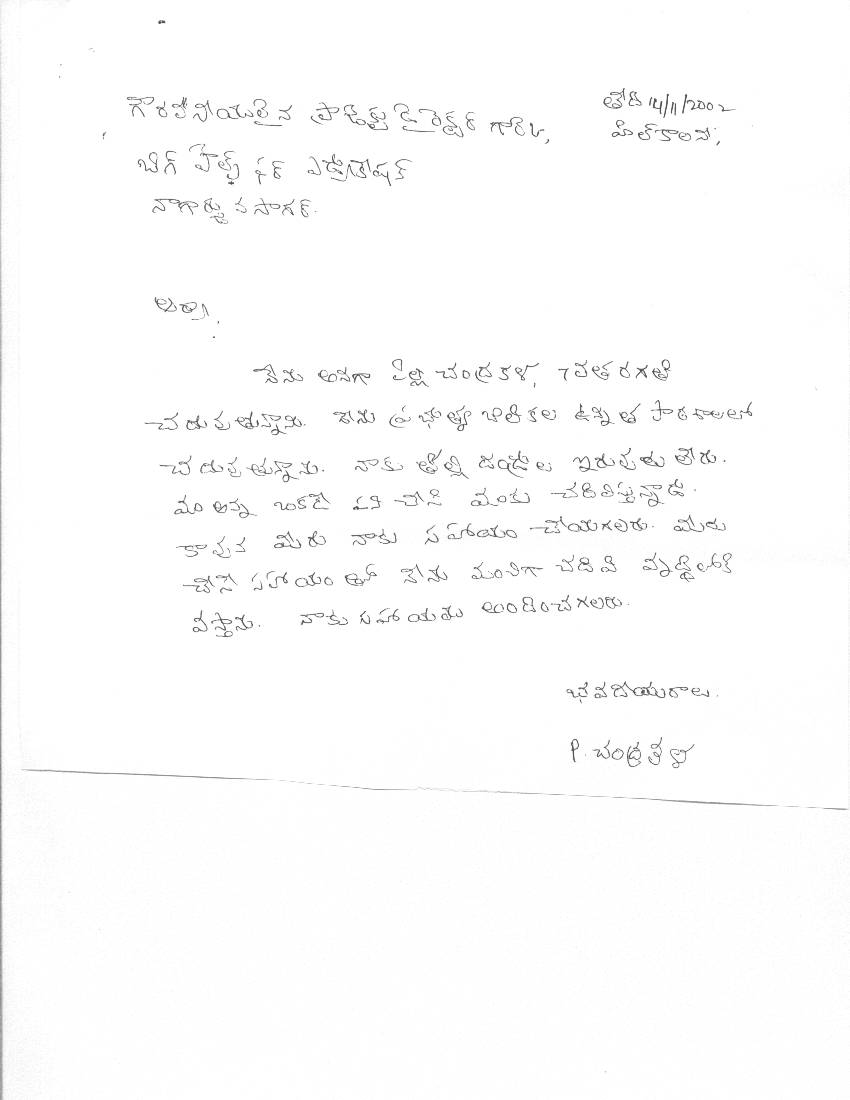 తేది 14/11/2002
గౌరవనీయులైన ప్రాజెక్టు డైరెక్టర్ గారికి,
హిల్ కాలని,
బిగ్ హెల్ప్ ఫర్ ఎడ్యుకేషన్
నాగార్జున సాగర్.
ఆర్యా,
నేను అనగా పిల్లి చంద్రకళ, 7వ తరగతి
చదువుతున్నాను. నేను ప్రభుత్వ బాలికల ఉన్నత పాఠశాలలో
చదువుతున్నాను. నాకు తల్లి దండ్రుల ఇరువురు లేరు.
మా అన్న ఒక్కడే పని చేసి మాకు చదివిస్తున్నాడు.
కావున మీరు నాకు సహాయం చేయగలరు. మీరు
చేసే సహాయం తో నేను మంచిగా చదివి వృద్ధిలోకి
వస్తాను. నాకు సహాయము అందించగలరు.
భవదీయురాలు.
P. చంద్రకళ